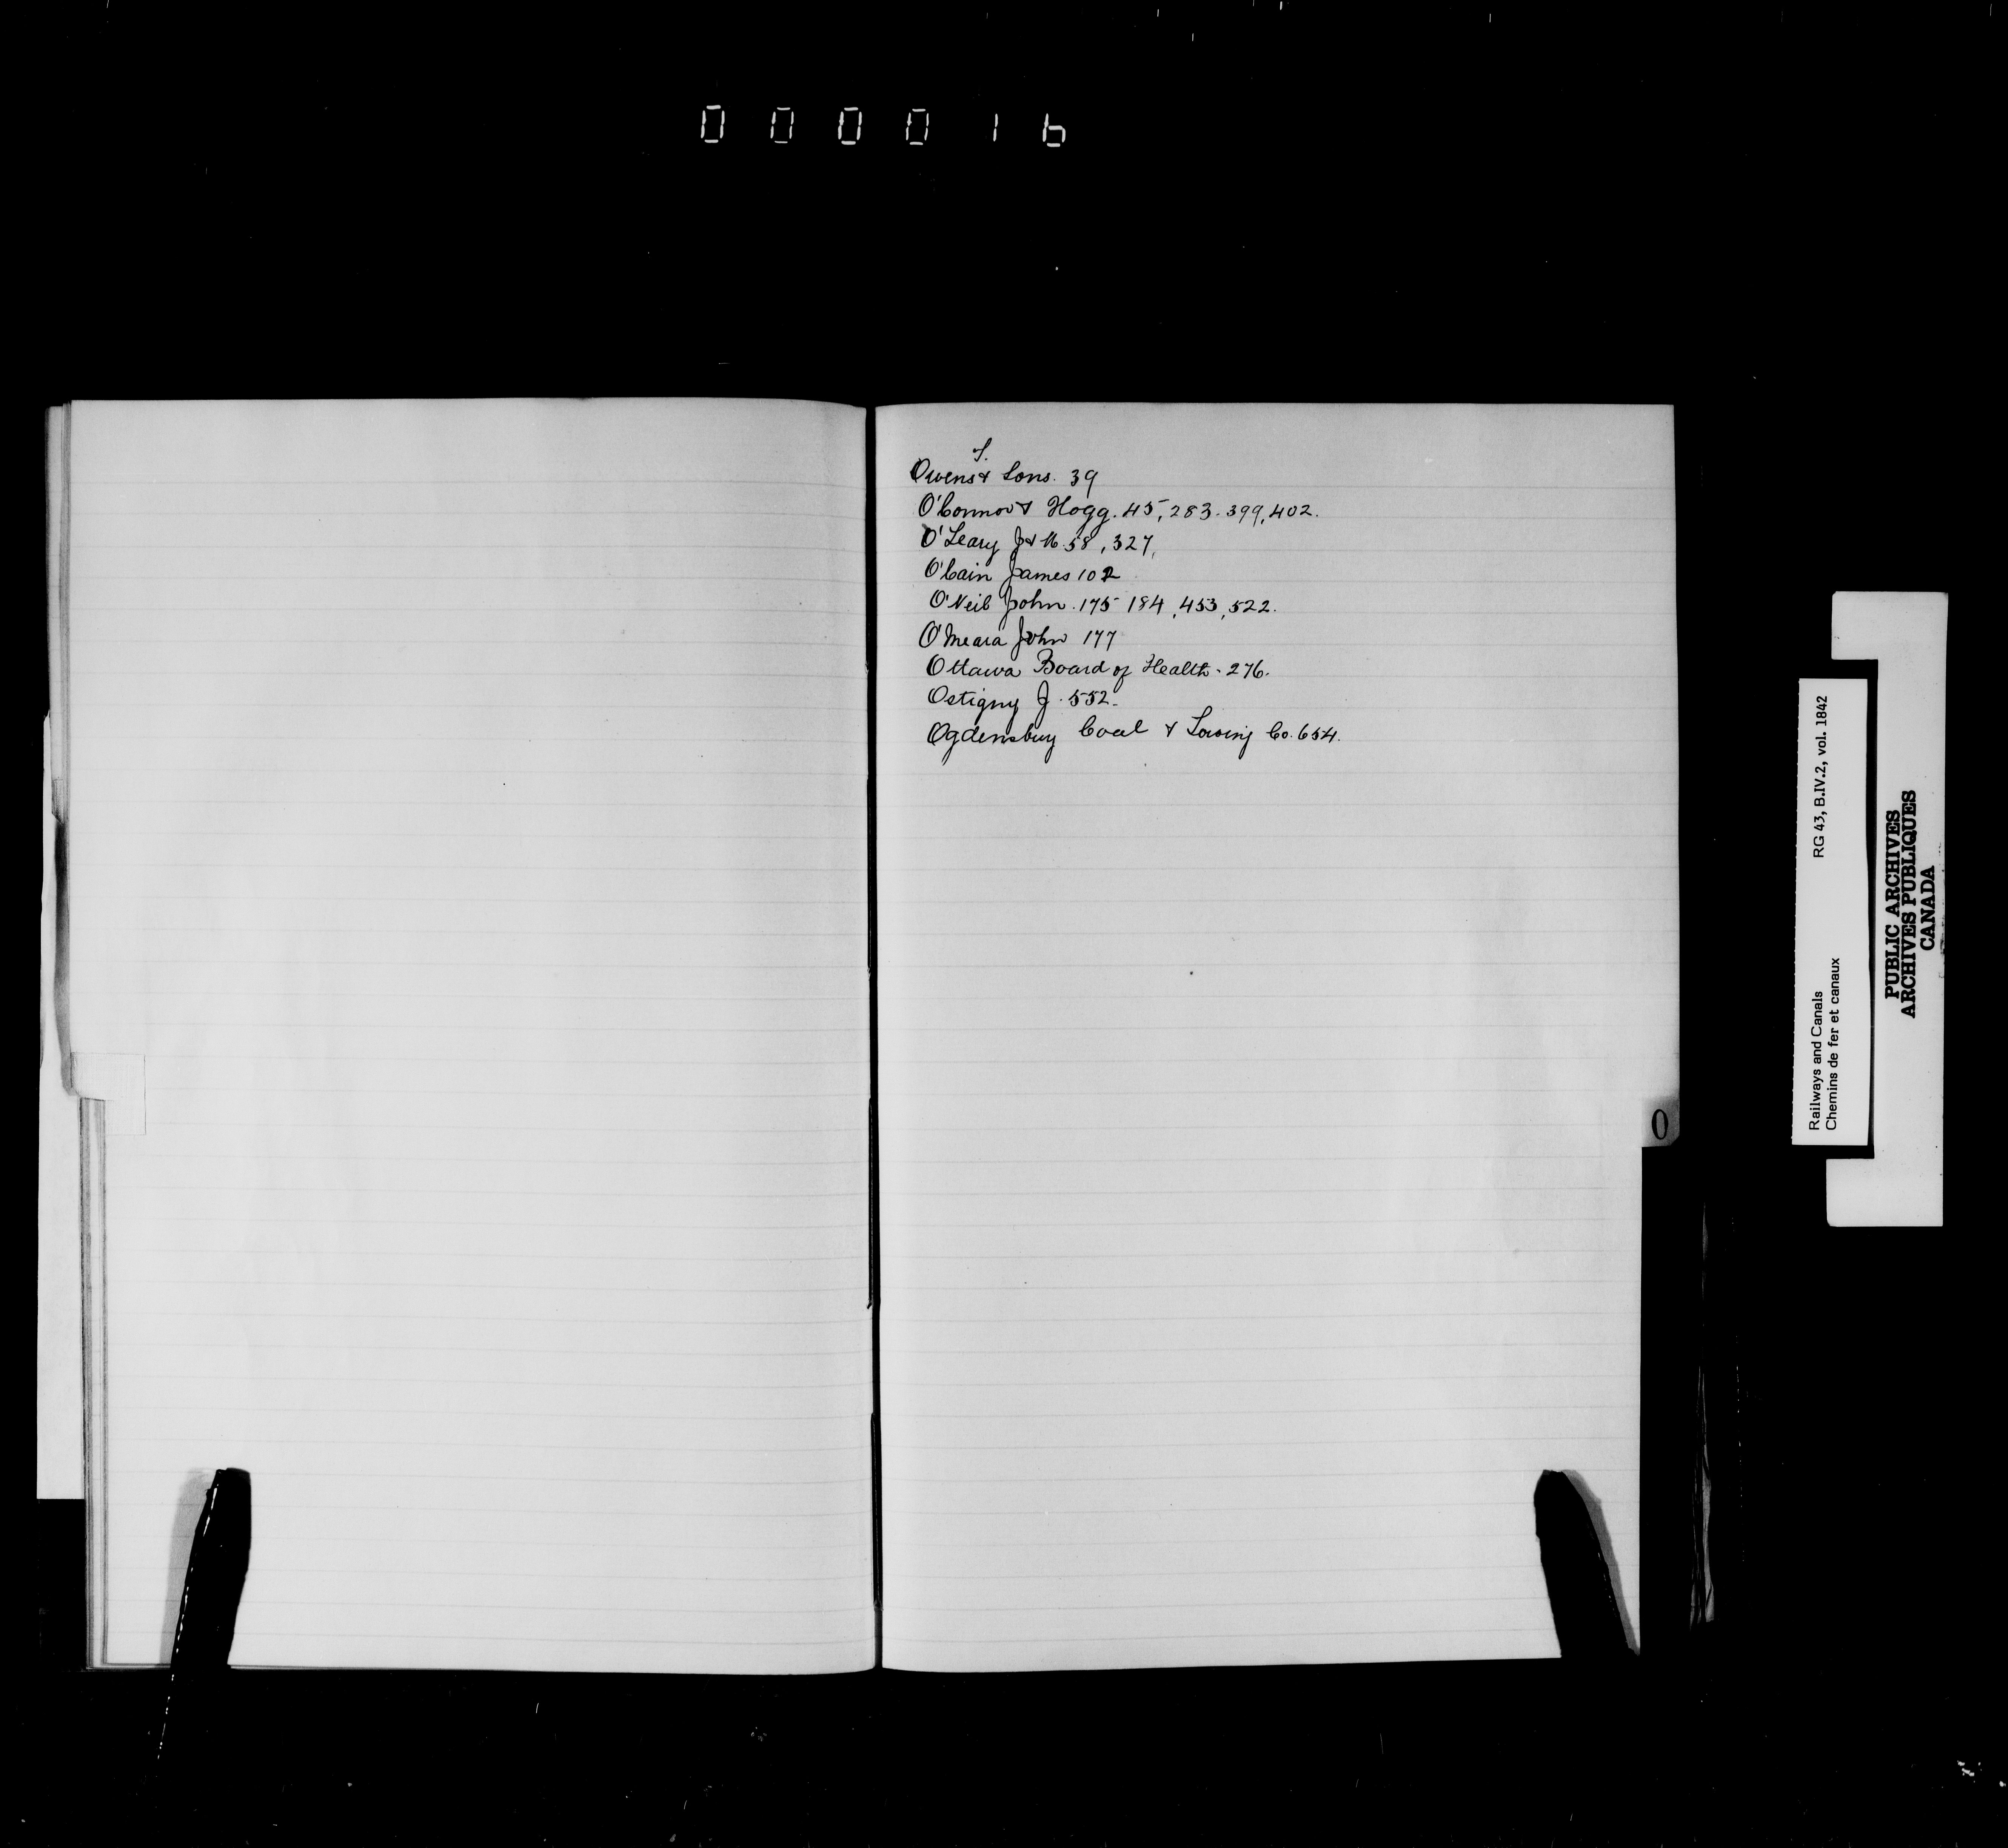 000016
T.
Owens & Sons. 39
O'Connor & Hogg. 45, 283. 399, 402.
O'Leary J & M. 58, 327,
O'Cain James 102
O'Neil John. 175 184, 453, 522.
O'Meara John 177
Ottawa Board of Health. 276.
Ostigny J. 552.
Ogdensburg Coal & Towing Co. 654.
O
Railways and Canals RG 43, B.IV.2, vol. 1842
Chemins de fer et canaux
PUBLIC ARCHIVES
ARCHIVES PUBLIQUES
CANADA